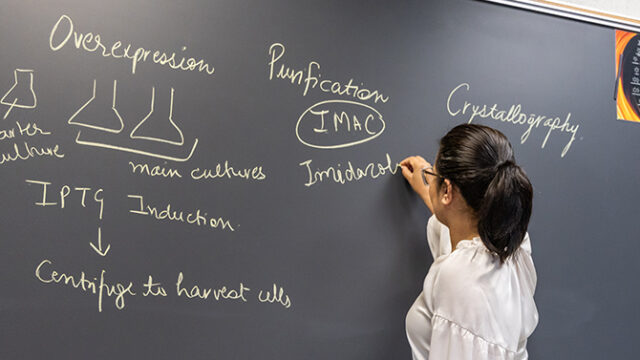 Overexpression
culture
main cultures
IPTG Induction.
Centrifuge to harvest cells
Purification
IMAC
Imidazol
Crystallography.